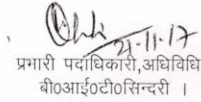 21-11-17
प्रभारी पदाधिकारी,अधिविधि
बी०आई०टी०सिन्दरी ।